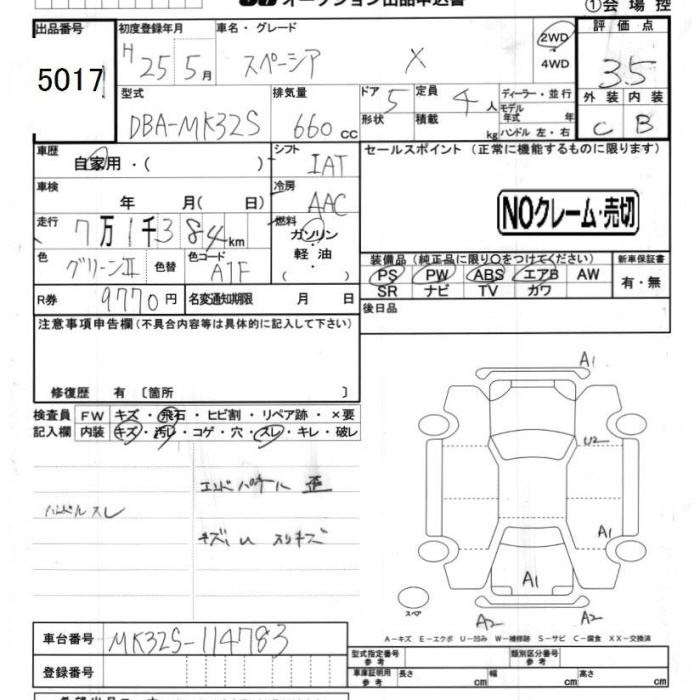 オークション出品申込書
①会場控
出品番号 初度登録年月 車名・グレード 評価点
5017 H 25 5月 スペーシア X 2WD・4WD 3.5
型式 排気量 ドア 5 定員 4人 ディーラー・並行 外装 内装
DBA-MK32S 660cc 形状 積載 kg モデル年式 年 ハンドル 左・右 C B
車歴 自家用・( ) シフト IAT セールスポイント(正常に機能するものに限ります)
車検 年 月( 日) 冷房 AAC
NOクレーム・売切
走行 7万1千384km 燃料 ガソリン・軽油・( )
装備品(純正品に限り○をつけてください) 新車保証書
色 グリーンⅡ 色替 色コード
PS PW ABS エアB AW 有・無
SR ナビ TV カワ
R券 9770円 名変通知期限 月 日
後日品
注意事項申告欄(不具合内容等は具体的に記入して下さい)
修復歴 有〔箇所 〕
検査員 FW キズ・飛石・ヒビ割・リペア跡・×要
記入欄 内装 キズ・汚レ・コゲ・穴・スレ・キレ・破レ
A1
U2
エンドパネル 歪
ハンドル スレ
キズ スリキズ
A1
A1
スペア
A2 A2
A-キズ E-エクボ U-凹み W-補修跡 S-サビ C-腐食 XX-交換済
車台番号 MK32S-114783
型式指定番号 参考 類別区分番号 参考
登録番号
車庫証明用 参考 長さ cm 幅 cm 高さ cm